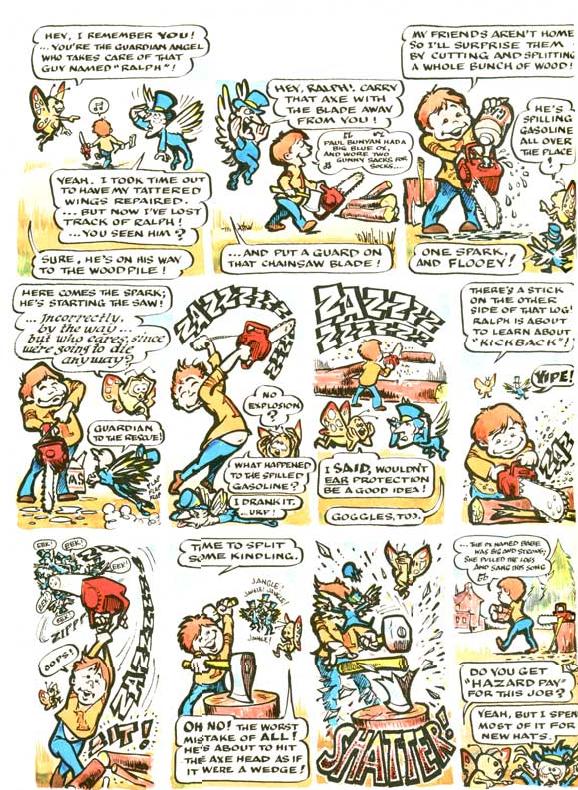 HEY, I REMEMBER YOU!
...YOU'RE THE GUARDIAN ANGEL
WHO TAKES CARE OF THAT
GUY NAMED "RALPH"!
YEAH. I TOOK TIME OUT
TO HAVE MY TATTERED
WINGS REPAIRED.
...BUT NOW I'VE LOST
TRACK OF RALPH!
...YOU SEEN HIM?
SURE, HE'S ON HIS WAY
TO THE WOODPILE!
HEY, RALPH! CARRY
THAT AXE WITH
THE BLADE AWAY
FROM YOU!
PAUL BUNYAN HAD A
BIG BLUE OX,
AND WORE TWO
GUNNY SACKS FOR
SOCKS...
...AND PUT A GUARD ON
THAT CHAINSAW BLADE!
MY FRIENDS AREN'T HOME
SO I'LL SURPRISE THEM
BY CUTTING AND SPLITTING
A WHOLE BUNCH OF WOOD!
HE'S
SPILLING
GASOLINE
ALL OVER
THE PLACE
!
ONE SPARK,
AND FLOOEY!
HERE COMES THE SPARK;
HE'S STARTING THE SAW!
... Incorrectly,
by the way...
but who cares, since
we're going to die
anyway?
GUARDIAN
TO THE RESCUE!
GAS
FLAP
FLAP
FLAP
ZAZZZZZZ
NO
EXPLOSION
?
WHAT HAPPENED
TO THE SPILLED
GASOLINE?
I DRANK IT.
...URP!
ZAZZZZ
ZZZZZZZ
I SAID, WOULDN'T
EAR PROTECTION
BE A GOOD IDEA!
GOGGLES, TOO.
THERE'S A STICK
ON THE OTHER
SIDE OF THAT LOG!
RALPH IS ABOUT
TO LEARN ABOUT
"KICKBACK"!
YIPE!
ZAP
EEK!
EEK!
EEK!
EEK
EEK!
ZIPPP
OOPS!
TIME TO SPLIT
SOME KINDLING.
JANGLE!
JANGLE! JANGLE!
JANGLE!
OH NO! THE WORST
MISTAKE OF ALL!
HE'S ABOUT TO HIT
THE AXE HEAD AS IF
IT WERE A WEDGE!
SHATTER!
...THE OX NAMED BABE
WAS BIG AND STRONG;
SHE PULLED THE LOGS
AND SANG THIS SONG
DO YOU GET
"HAZARD PAY"
FOR THIS JOB?
YEAH, BUT I SPEN
MOST OF IT FOR
NEW HATS.